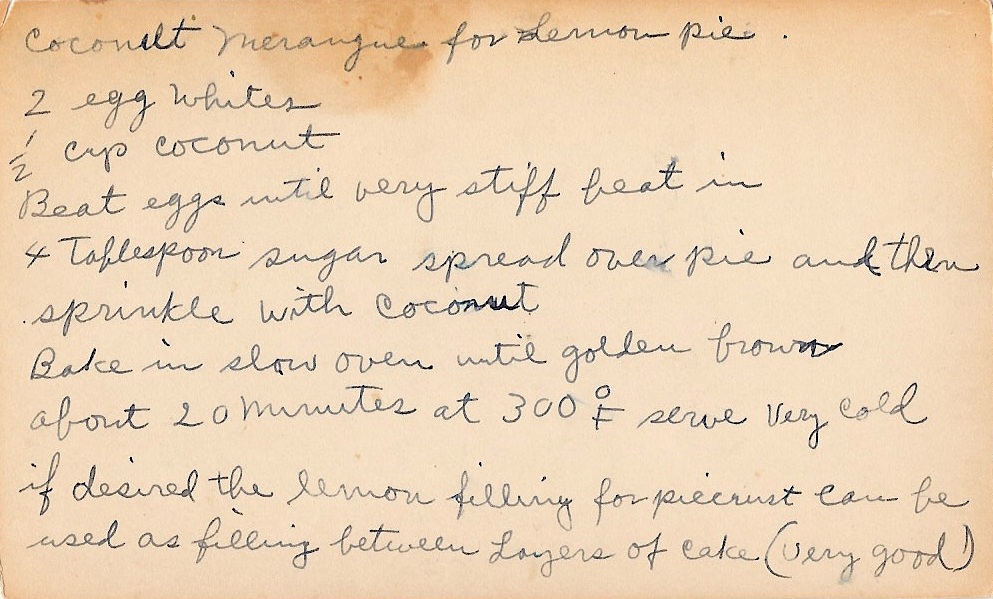 Coconut Merangue for Lemon pie.
2 egg whites
1/2 cup coconut
Beat eggs until very stiff beat in
4 Tablespoon sugar spread over pie and then
sprinkle with coconut
Bake in slow oven until golden brown
about 20 minutes at 300°F serve very cold
if desired the lemon filling for piecrust can be
used as filling between Layers of cake (very good)